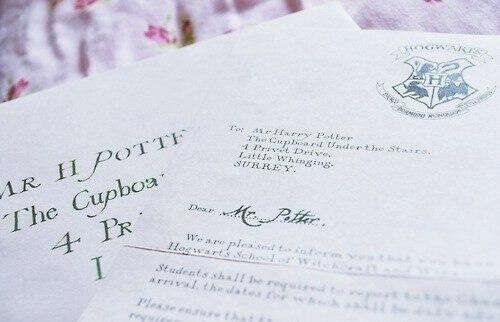 MR H POTTE
The Cupboa
4 Pr
HOGWARTS
H
To: Mr Harry Potter
The Cupboard Under the Stairs,
4 Privet Drive,
Little Whinging.
SURREY.
Dear Mr. Potter,
We are pleased to inform you that you
Hogwarts School of Witchcraft and
Students shall be required to report to the
arrival, the dates for which shall be duly
Please ensure that